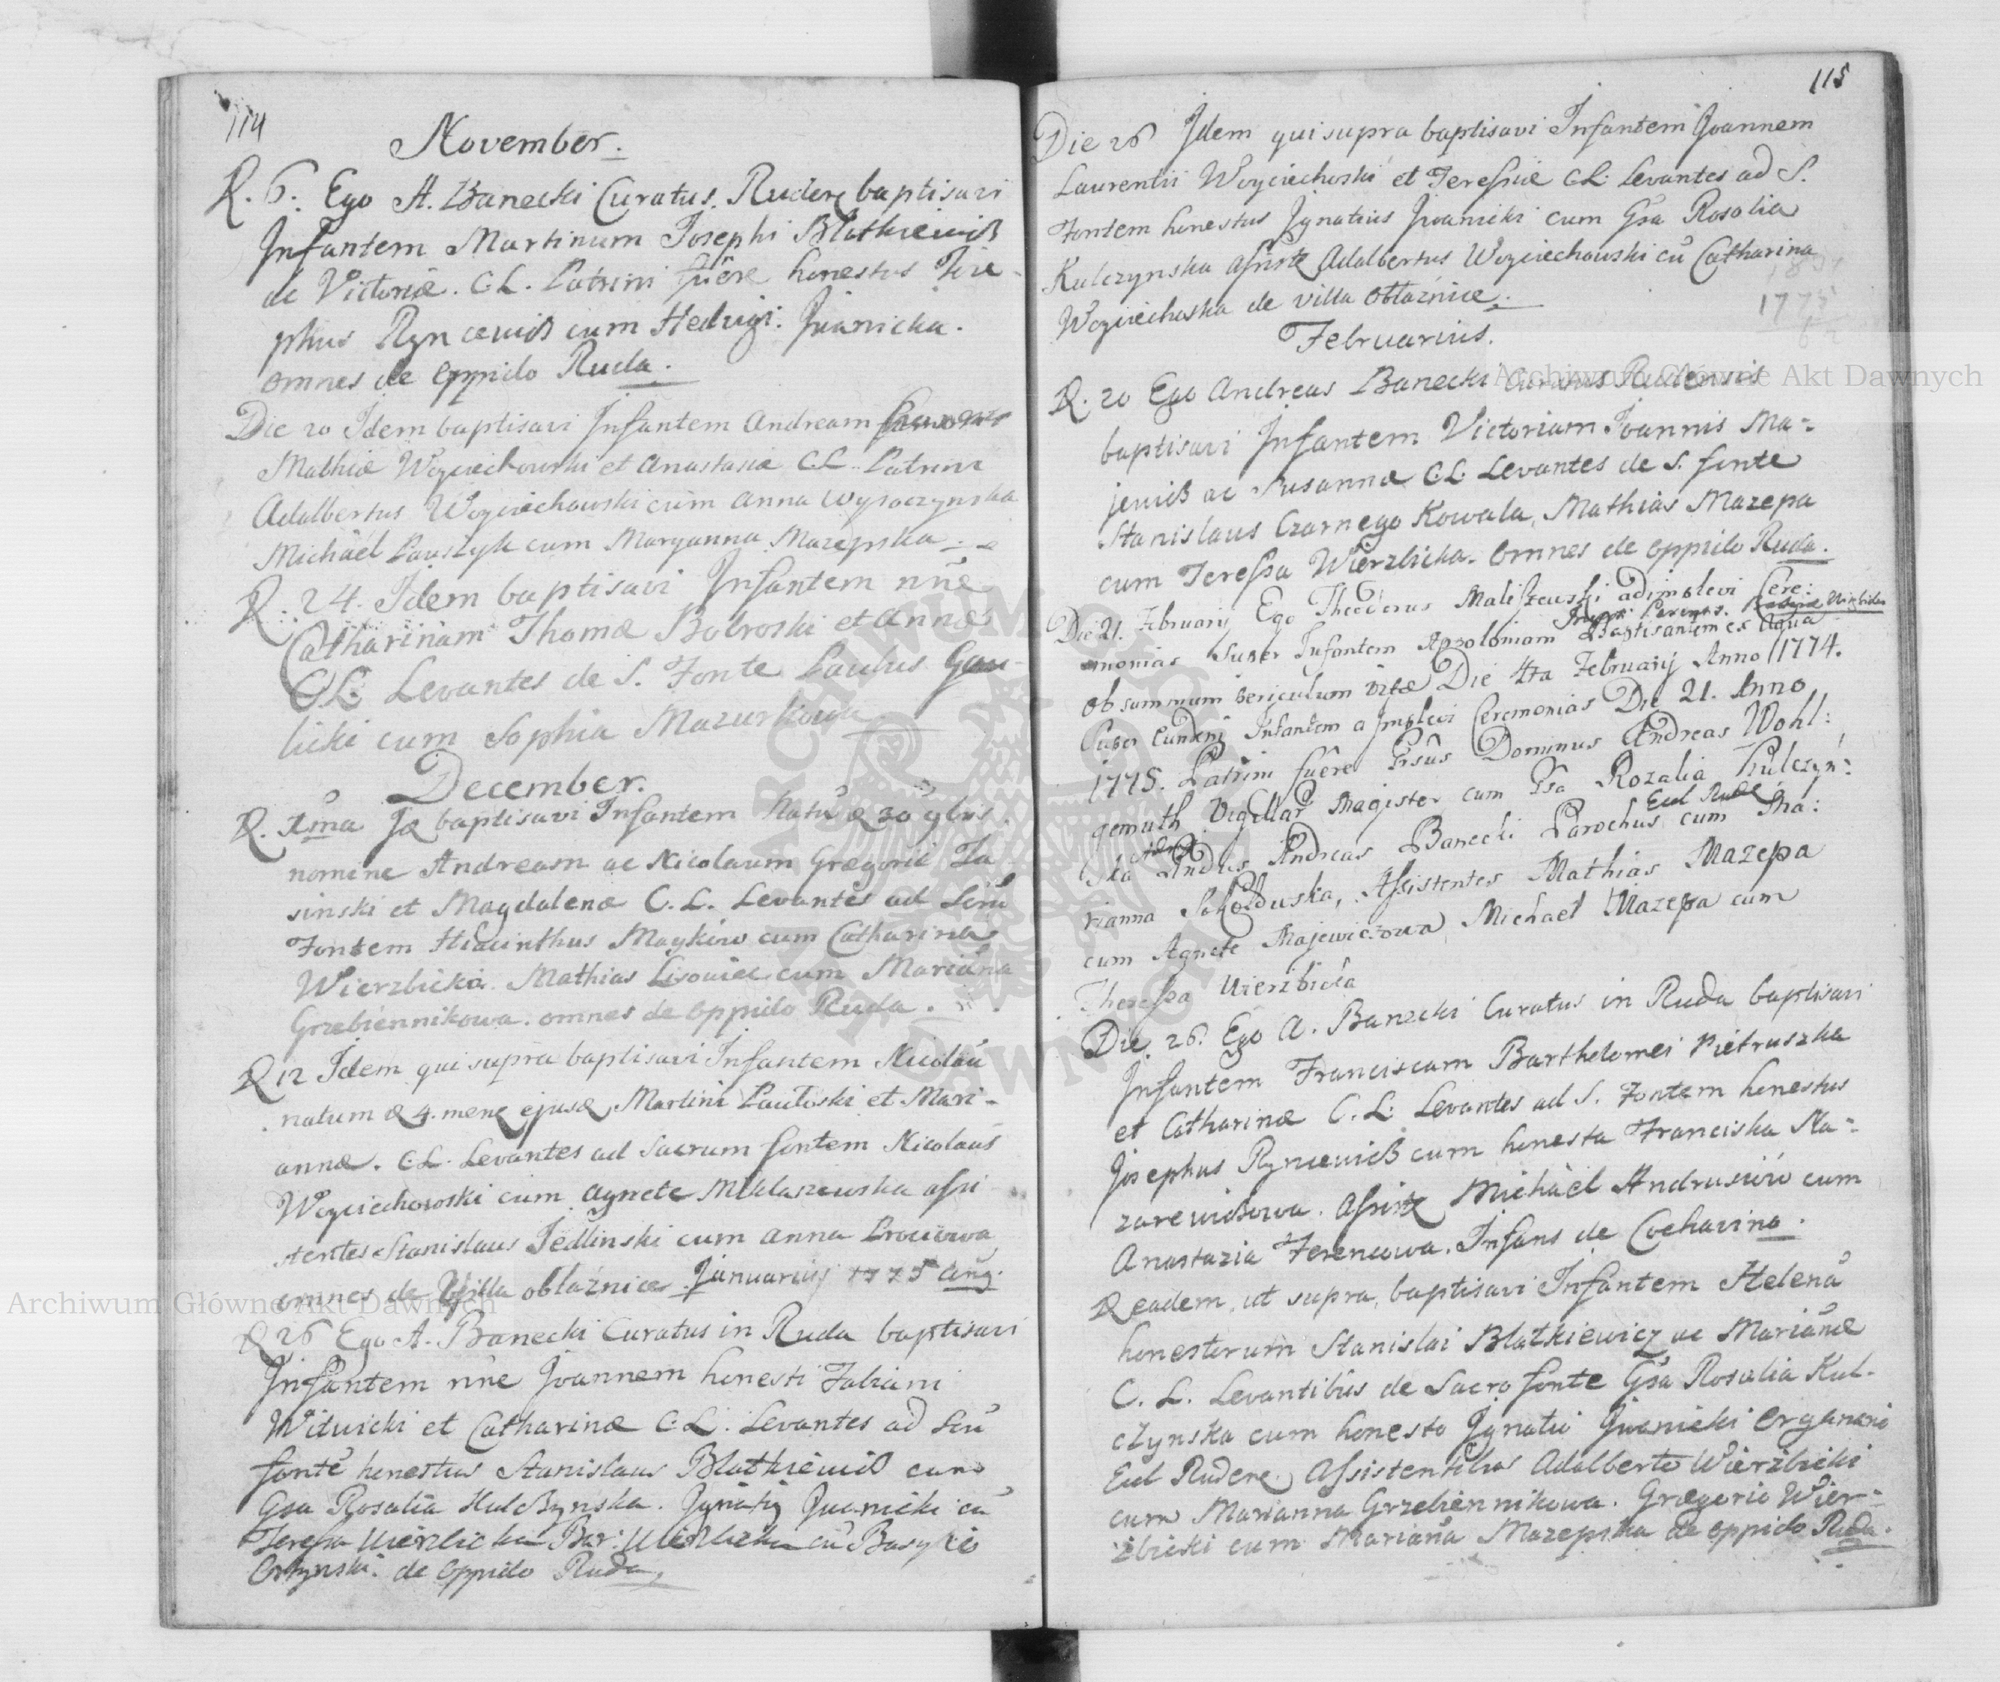 114
November.
D. 6. Ego A. Banecki Curatus Ruden baptisavi
Infantem Martinum Josephi Blatkiewiß
ac Victoriæ. C.L. Patrini fuêre honestus Jose-
phus Ryncewiß cum Hedwigi. Jwanicka.
omnes de oppido Ruda.
Die 20 Idem baptisavi Infantem Andream
Mathiæ Woyciechowski et Anastasiæ C.L. Patrini
Adalbertus Woyciechowski cum Anna Wysoczynska
Michael Pauszyk cum Maryanna Mazepska.
D. 24. Idem baptisavi Infantem nñe
Catharinam Thomæ Bobroski et Annæ
C.L. Levantes de S. Fonte Paulus Gau-
licki cum Sophia Mazurkowa
December.
D. Ima baptisavi Infantem Natū 30 9bris.
nomine Andream ac Nicolaum Gregorii Ja-
sinski et Magdalenæ C.L. Levantes ad Scrū
Fontem Hiacinthus Maykow cum Catharina
Wierzbicka. Mathias Lisowiec cum Mariana
Grzebiennikowa. omnes de oppido Ruda.
D 12 Idem qui supra baptisavi Infantem Nicolaū
natum 4. mens ejusd, Martini Pauloski et Mari-
annæ. C.L. Levantes ad Sacrum fontem Nicolaus
Woyciechowski cum Agnete Miklaszewska assi
stentes Stanislaus Jedlinski cum Anna
omnes de Villa oblaznice Januarius 1775 Anō.
D 26 Ego A. Banecki Curatus in Ruda baptisavi
Infantem nñe Joannem honesti Fabiani
Witwicki et Catharinæ C.L. Levantes ad Scrū
fontē honestus Stanislaus Blatkiewiß cum
Gsa Rosalia Kulczynska. Jgnatij Jwanicki cū
Teressa Wierzbicka Bar: Wierzbicka cū
de oppido Ruda.
115
Die 26 Jdem qui supra baptisavi Infantem Joannem
Laurentii Woyciechoski et Teressiæ C.L. Levantes ad S.
Fontem honestus Jgnatius Jwanicki cum Gsa Rosolia
Kulczynska Adalbertus Woyciechowski cū Catharina
Woyciechoska de villa Obłaznice.
1775
Februarius.
D. 20 Ego Andreas Banecki Curatus Rudensis
baptisavi Infantem Victoriam Joannis Ma-
jewiß ac Susannæ C.L. Levantes de S. fonte
Stanislaus Czarnego Kowala, Mathias Mazepa
cum Teressa Wierzbicka. omnes de oppido Ruda.
Die 21. Februarij Ego Theodorus Maliszewski adimplevi Cere:
monias super Infantem Appoloniam Baptisantem ex Aqua
ob summum periculum vitæ Die 4ta Februarij Anno 1774.
super Eundem Infantem adimplevi Ceremonias Die 21. Anno
1775. Patrini fuêre Gsūs Dominus Andreas Wohl:
gemuth Magister cum Gsa Rozalia Kulczyń:
ska Andreas Banecki Parochus Eccl Rudæ cum Ma:
rianna Sokołowska, Assistentes Mathias Mazepa
cum Agnete Majewiczowa Michael Mazepa cum
Theressa Wierzbicka
Die 26. Ego A. Banecki Curatus in Ruda baptisavi
Infantem Franciscam Barthelomei Pietruszka
et Catharinæ C.L. Levantes ad S. Fontem honestus
Josephus Ryncewiß cum honesta Franciska Na-
zarewißowa. Michaël Andrusiów cum
Anastazia Ferencowa. Infans de Cochavina.
D eadem, ut supra, baptisavi Infantem Helenā
honestorum Stanislai Blatkiewicz ac Mariānæ
C. L. Levantibus de Sacro fonte Gsa Rosalia Kul-
czynska cum honesto Jgnatio Jwanicki organario
Eccl Ruden. Assistentibus Adalberto Wierzbicki
cum Marianna Grzebiennikowa. Gregorio Wier-
zbicki cum Marianā Mazepska de oppido Ruda.
Archiwum Główne Akt Dawnych
Archiwum Główne Akt Dawnych